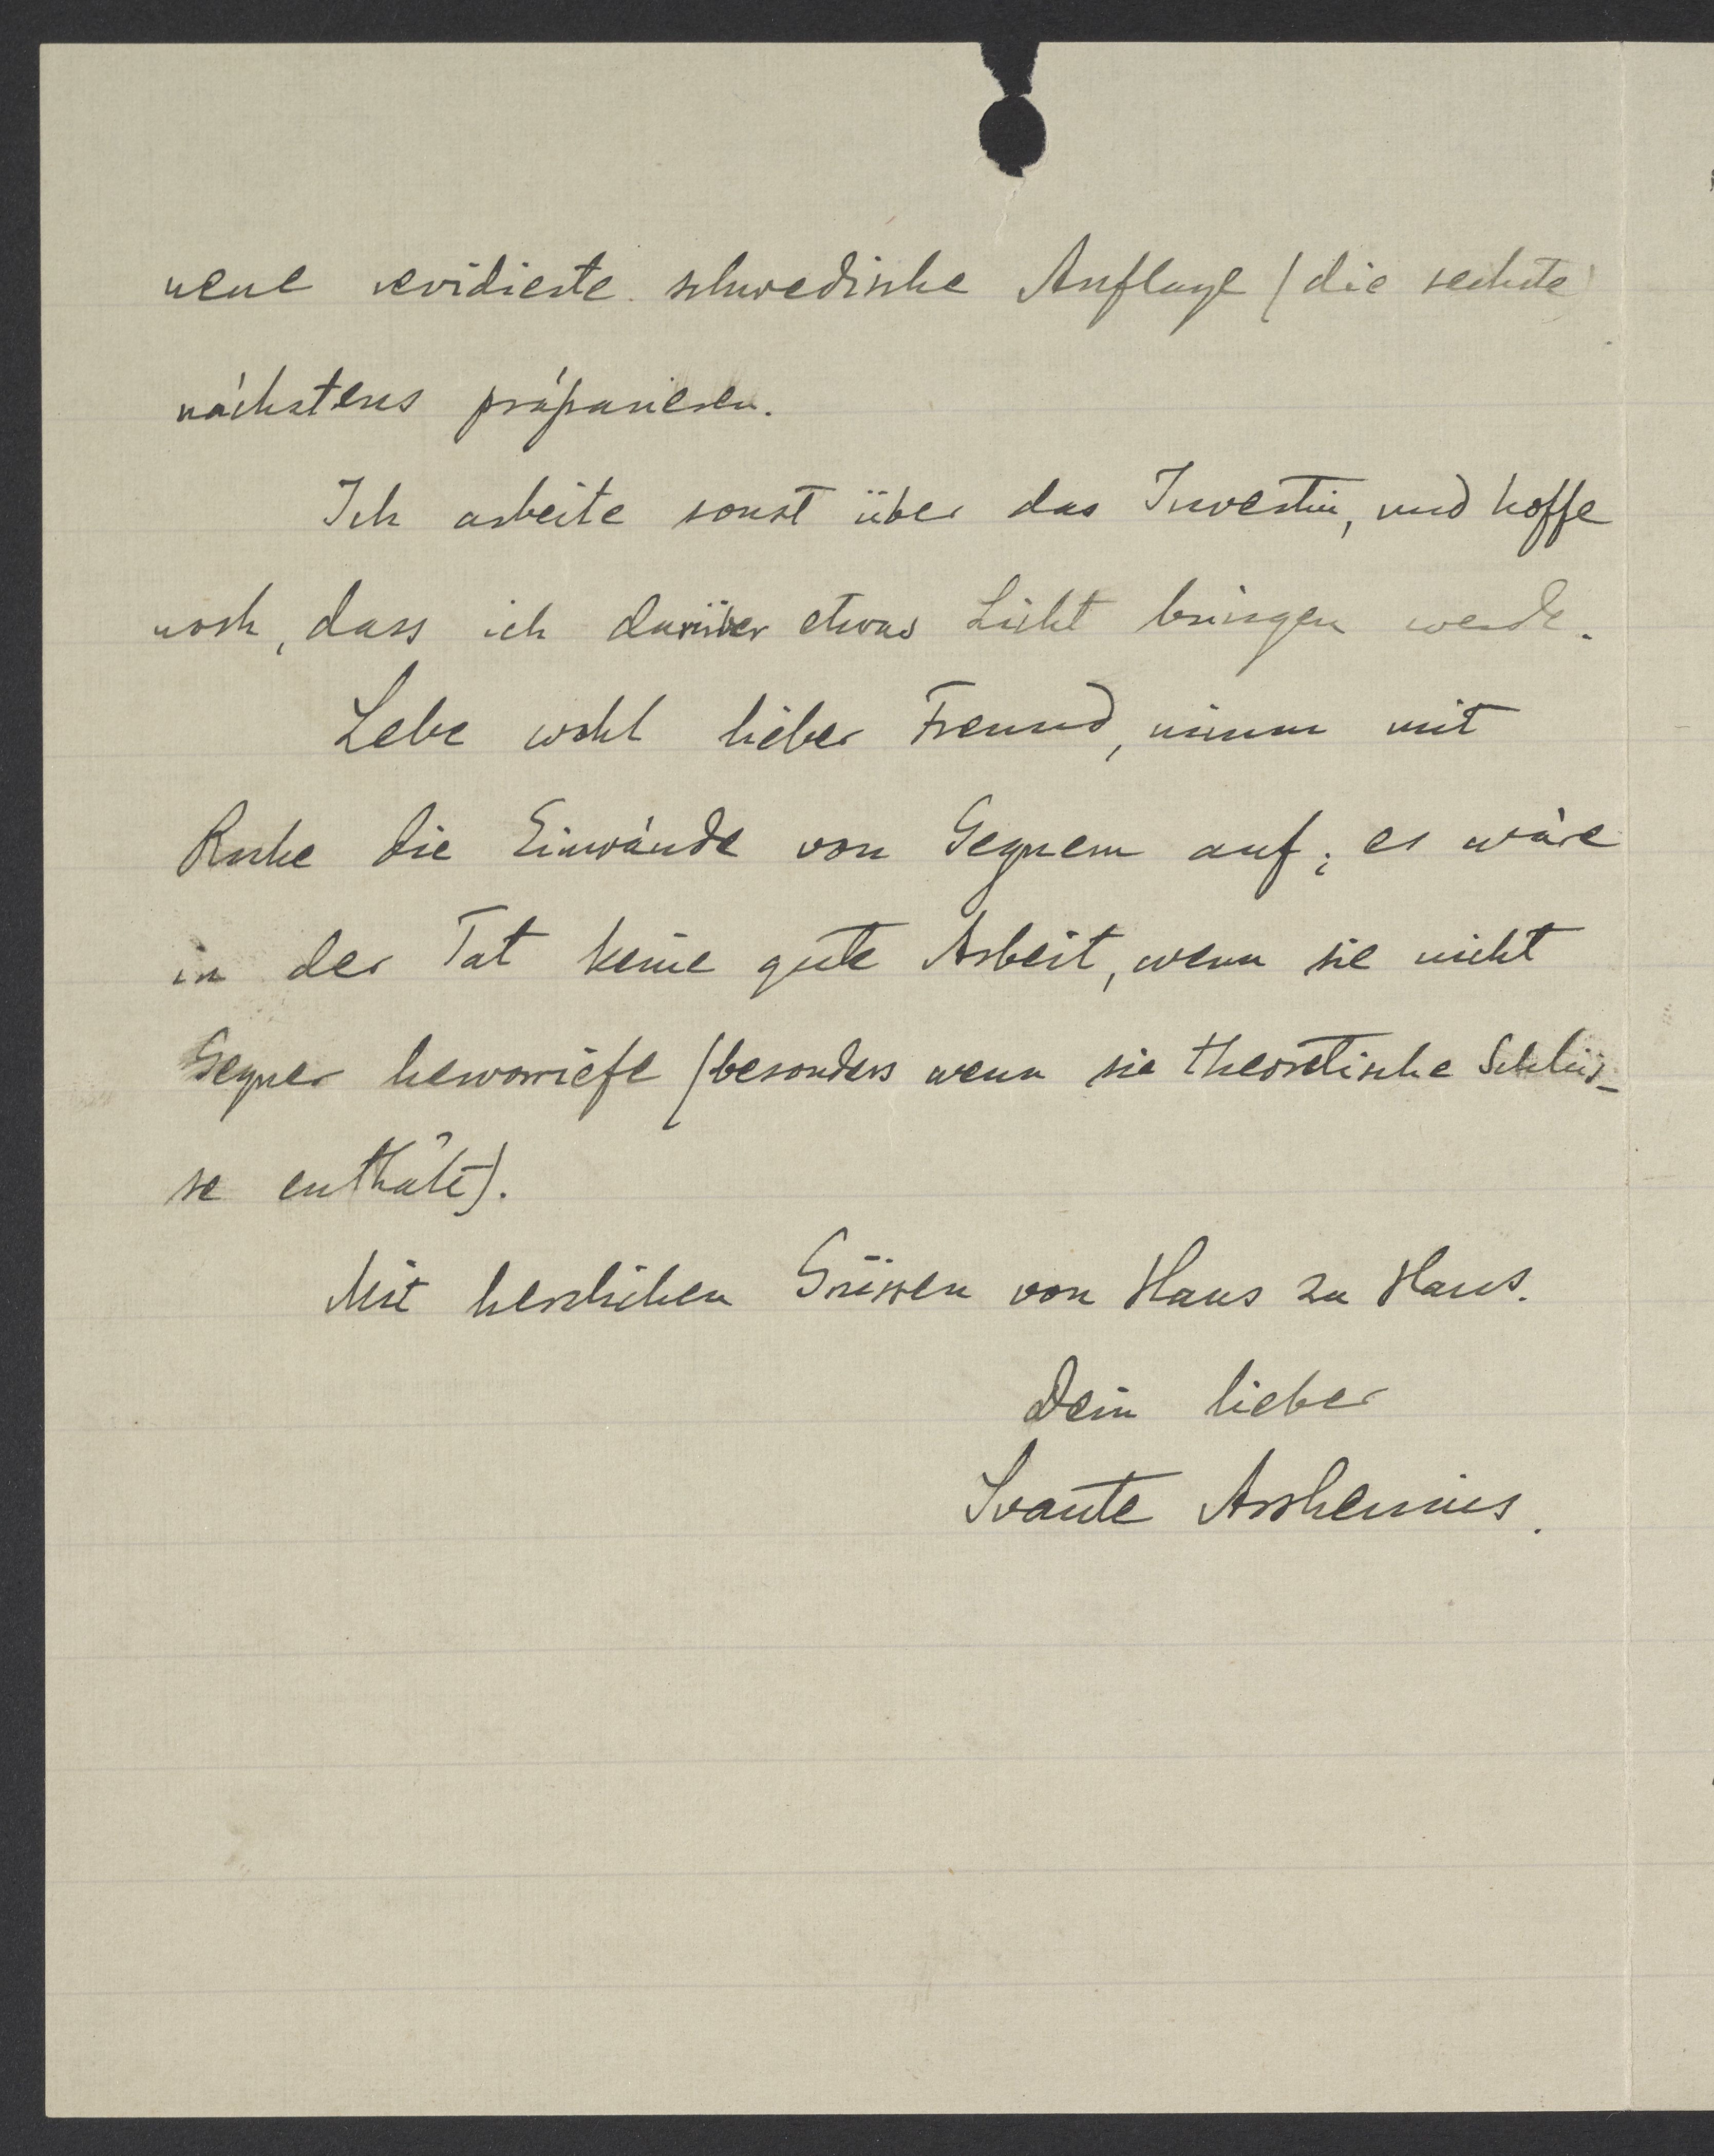 neue revidierte schwedische Auflage (die sechste)
nächstens präparieren.
Ich arbeite sonst über das Invertin, und hoffe
noch, dass ich darüber etwas Licht bringen werde.
Lebe wohl lieber Freund, nimm mit
Ruhe die Einwände von Gegnern auf; es wäre
in der Tat keine gute Arbeit, wenn sie nicht
Gegner hervorriefe (besonders wenn sie theoretische Schlüs-
se enthält).
Mit herzlichen Grüssen von Haus zu Haus.
Dein lieber
Svante Arrhenius.